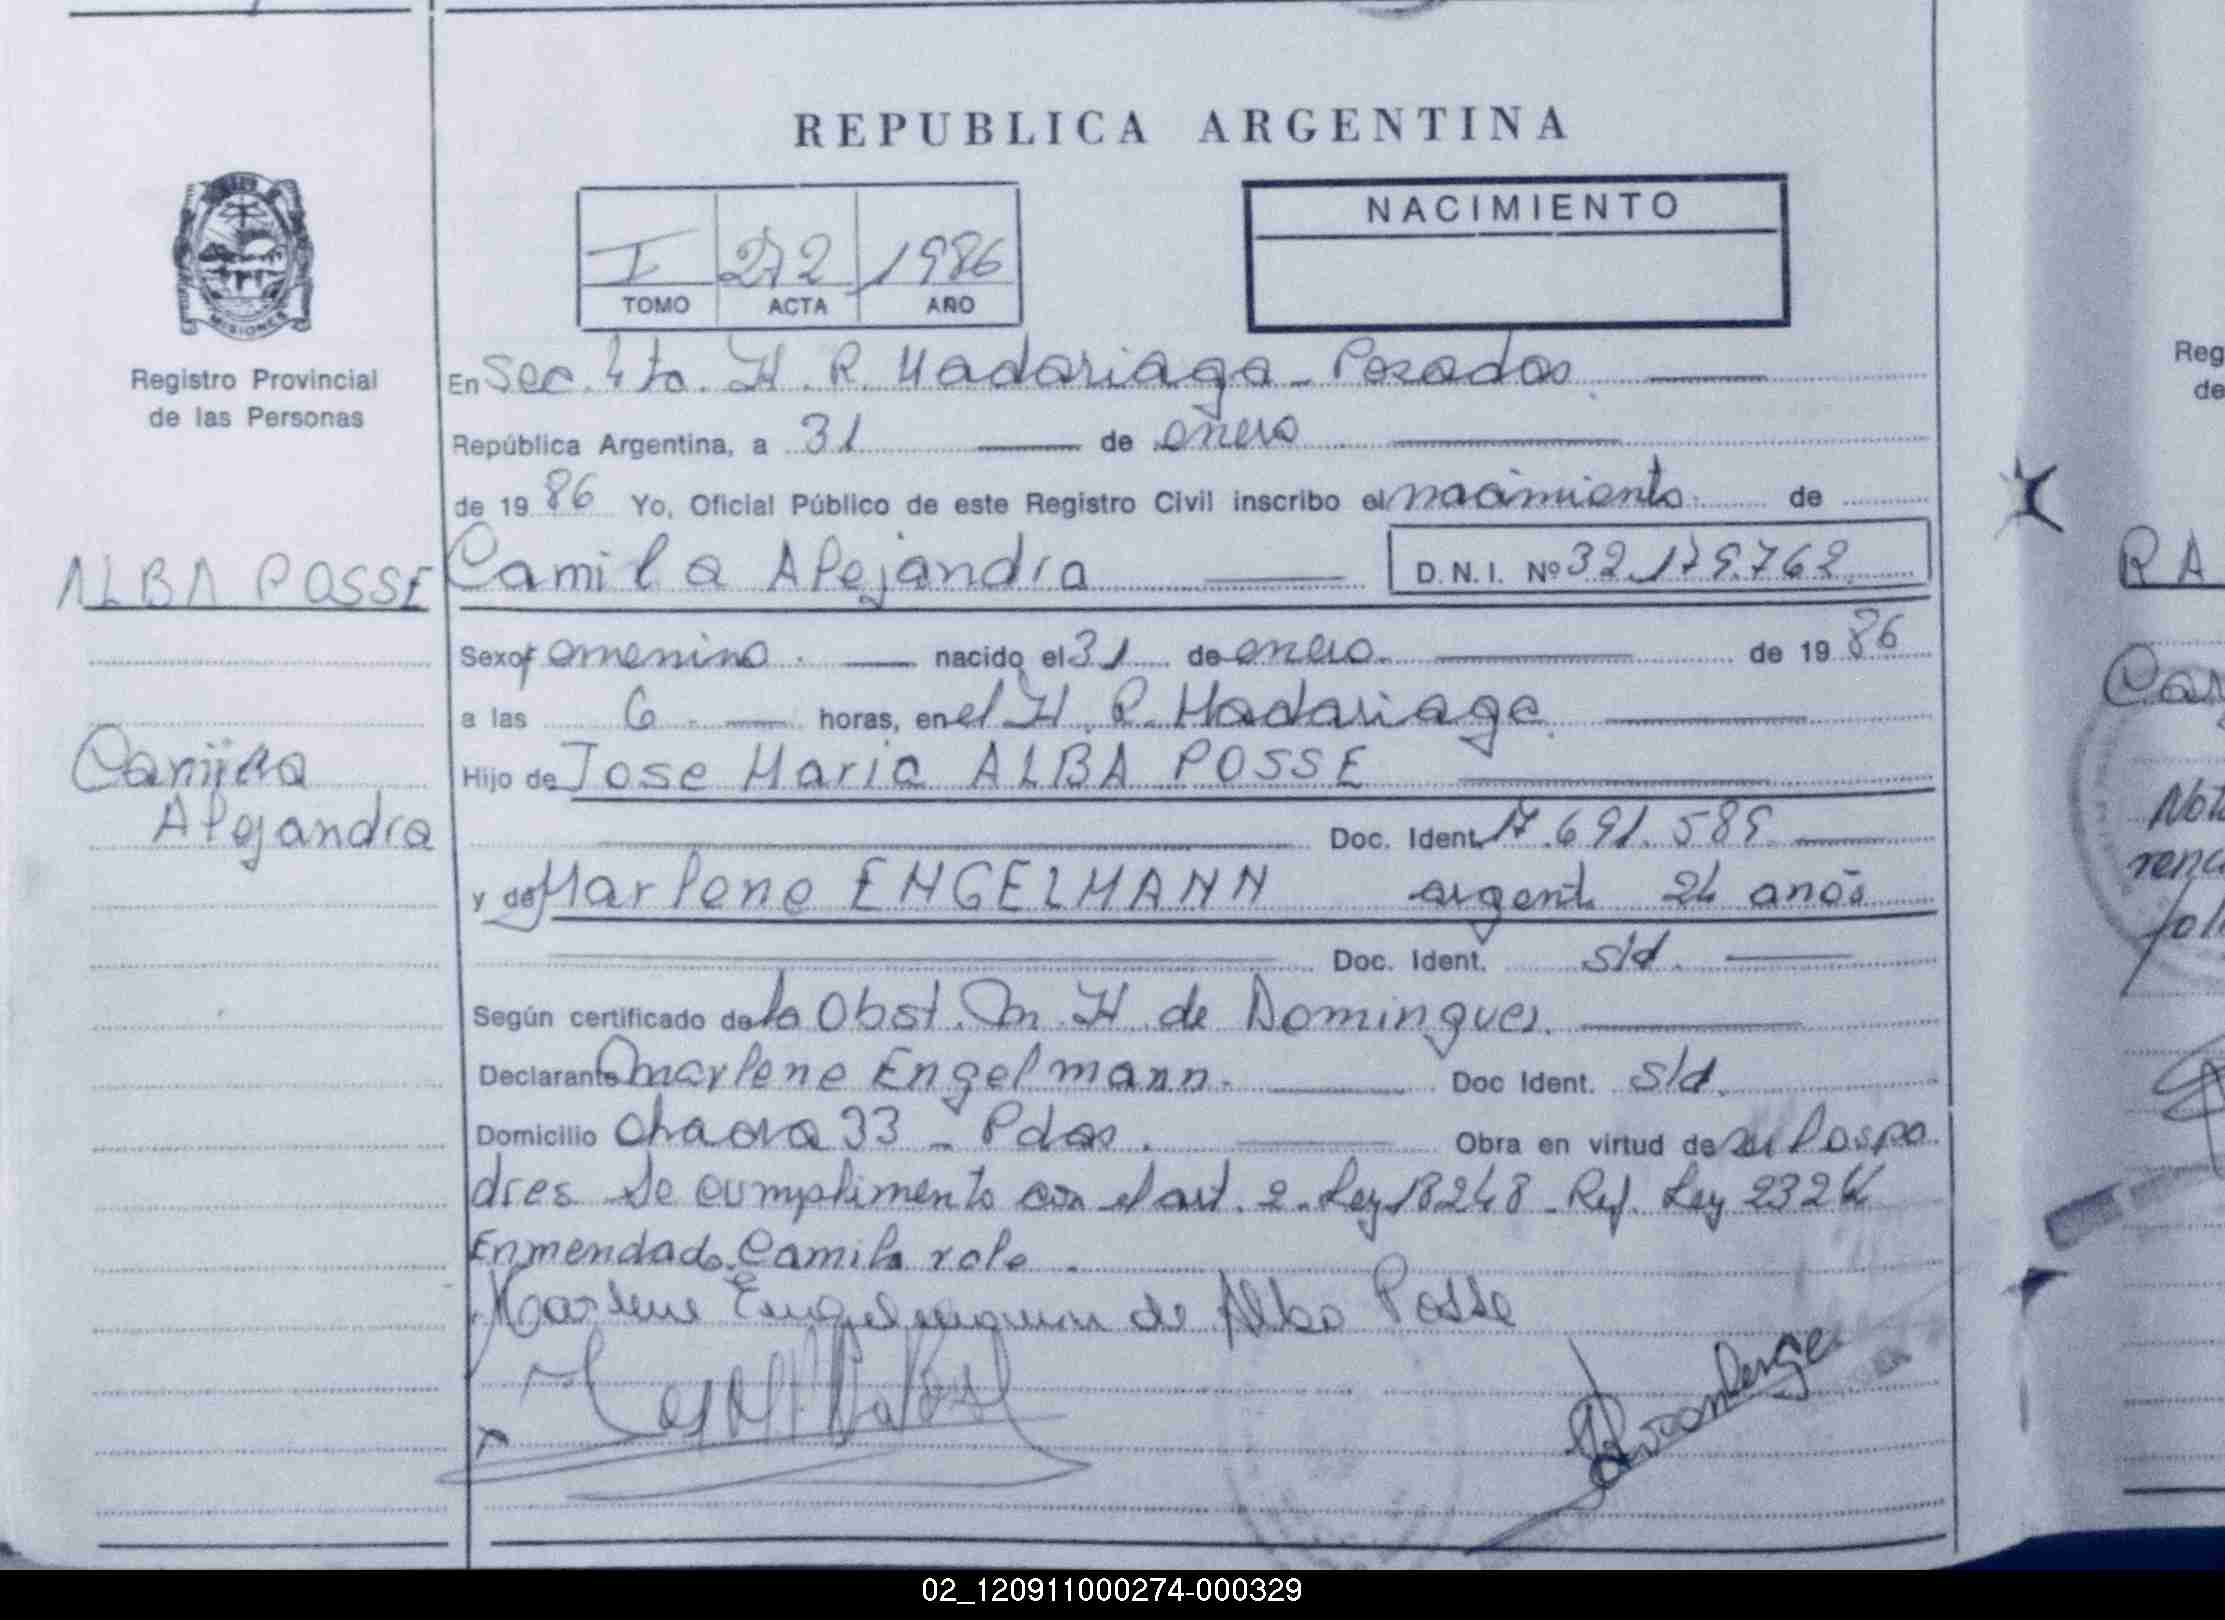 REPUBLICA ARGENTINA
NACIMIENTO
I 272 1986
TOMO ACTA AÑO
MISIONES
Registro Provincial
de las Personas
En Sec. 4ta. H. R. Madariaga - Posadas
República Argentina, a 31 de enero
de 1986 Yo, Oficial Público de este Registro Civil inscribo el nacimiento de
ALBA POSSE
Camila Alejandra D.N.I. Nº 32.179.762
Sexo femenino nacido el 31 de enero de 1986
a las 6 horas, en el H. R. Madariaga
Camila
Alejandra
Hijo de Jose Maria ALBA POSSE
Doc. Ident. 17.691.589
y de Marlene ENGELMANN argent. 24 años
Doc. Ident. s/d.
Según certificado de la Obst. M. H. de Domingues.
Declarante Marlene Engelmann. Doc Ident. s/d.
Domicilio chacra 33 - Pdas. Obra en virtud de su los pa
dres Se cumplimento con el art. 2. Ley 18248 - Ref. Ley 23264
Enmendado. Camila vale.
Marlene Engelmann de Alba Posse
Reg
de
RA
Not
02_120911000274-000329